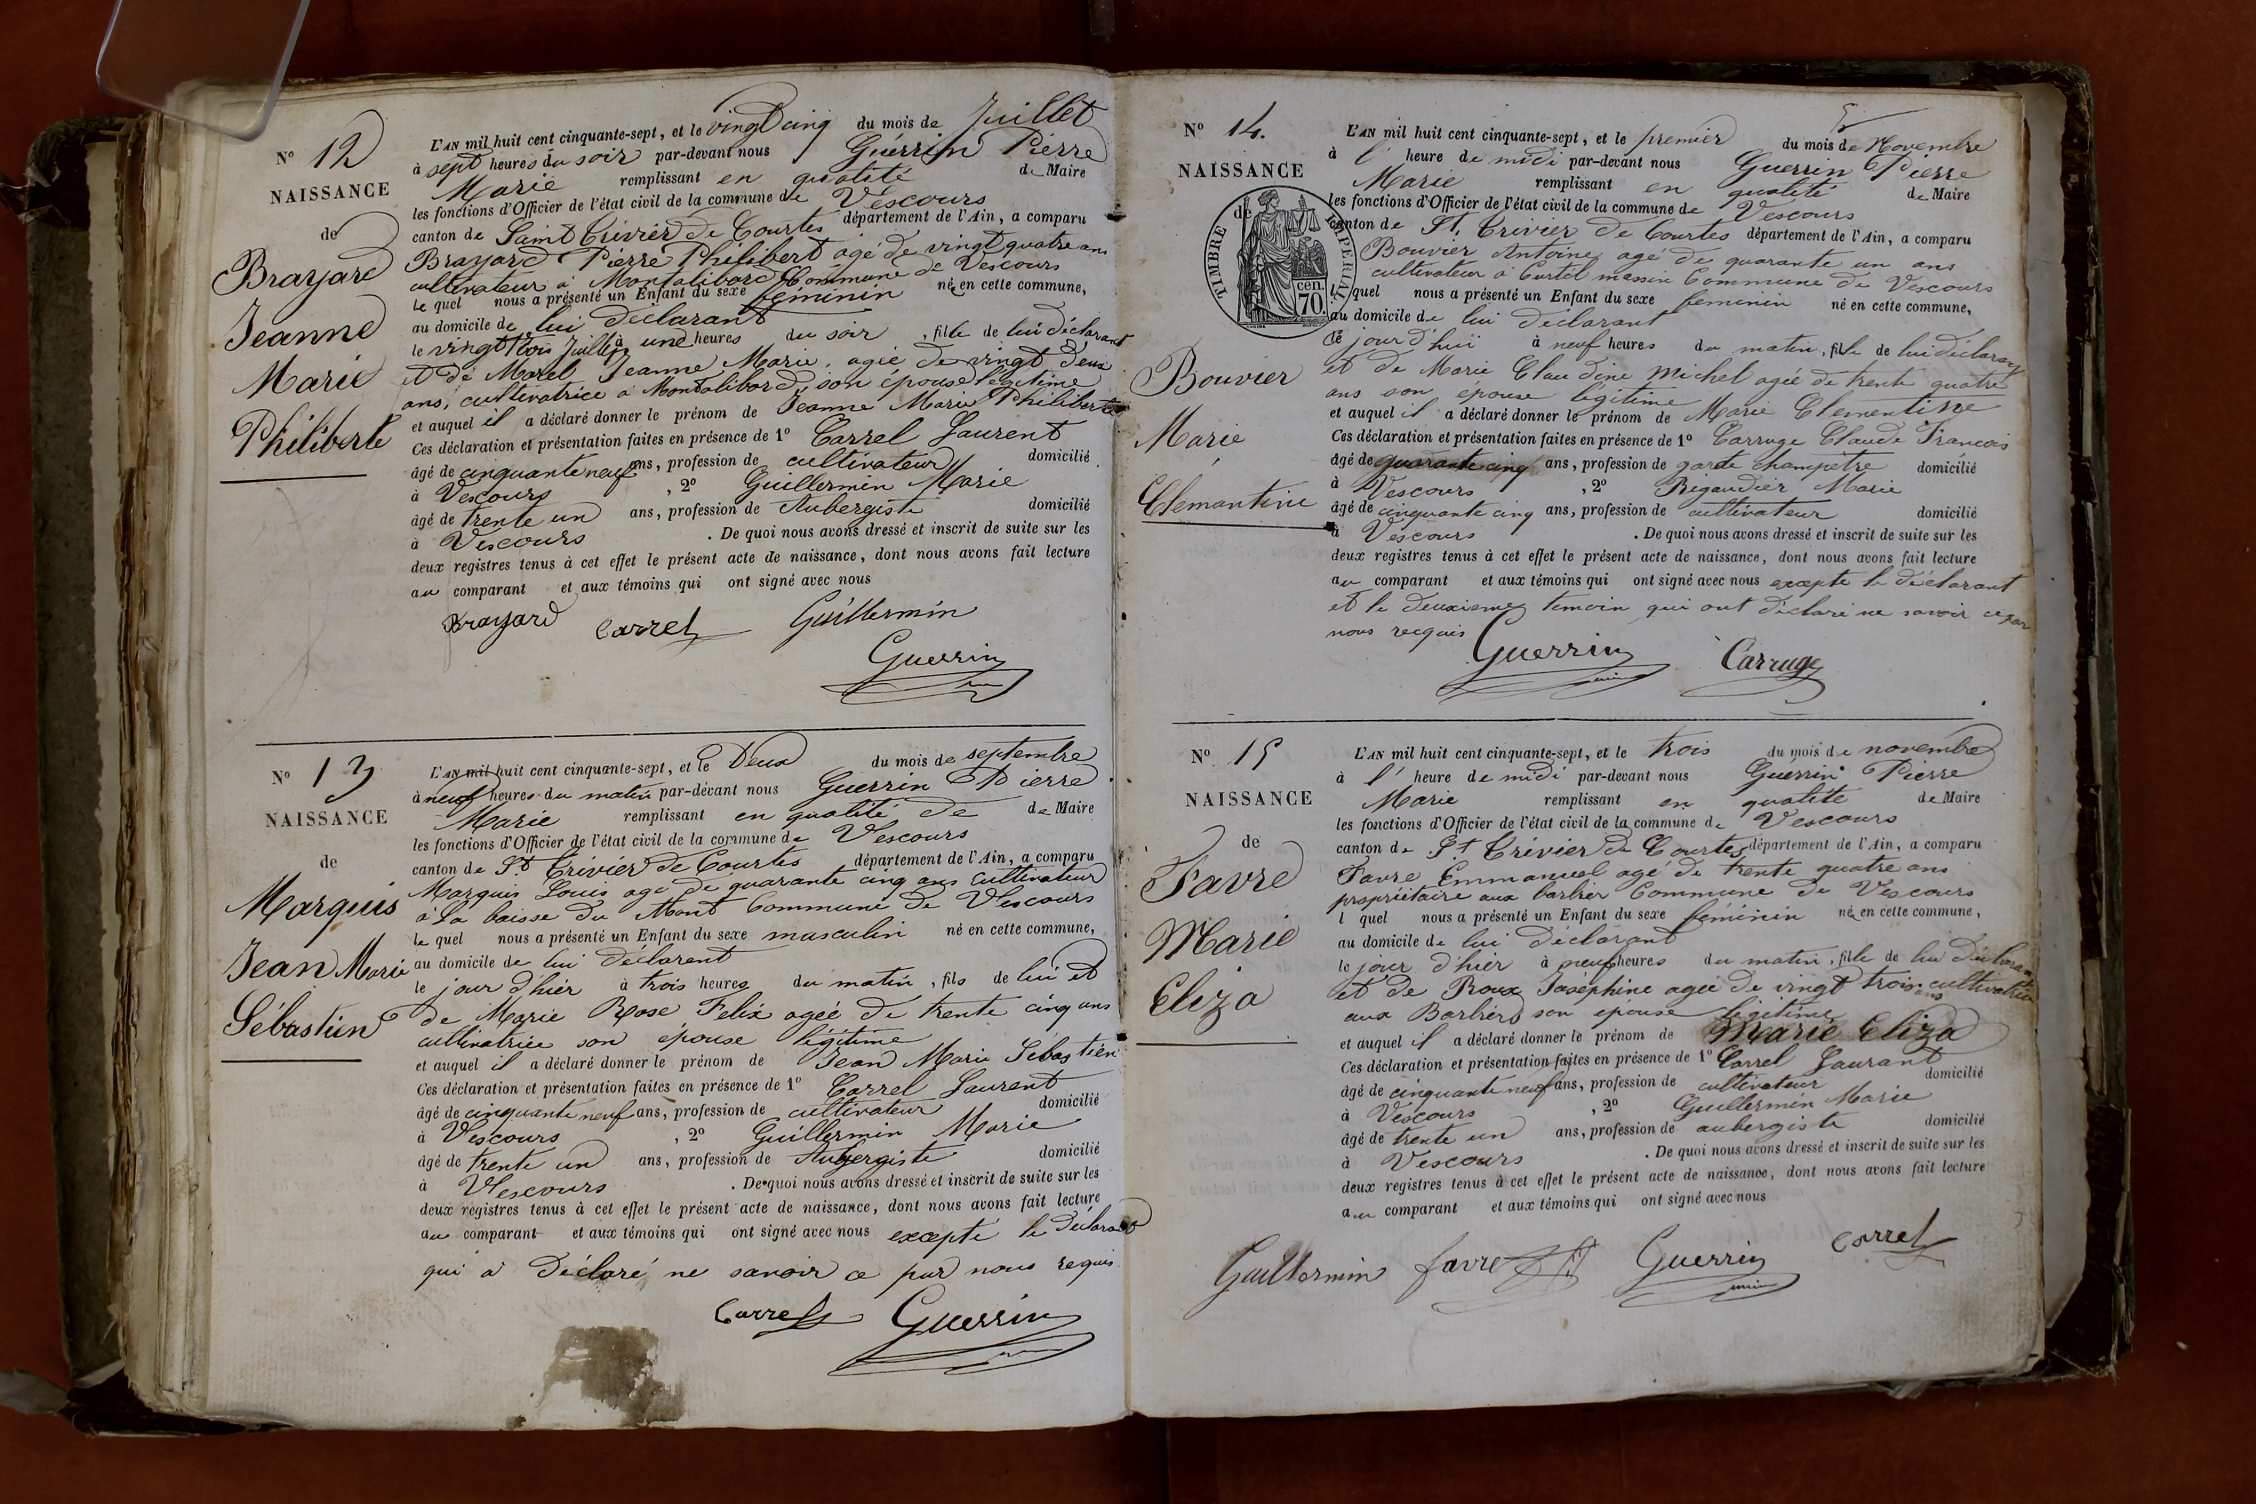 N° 12
NAISSANCE
de
Brayard
Jeanne
Marie
Philiberte
L'AN mil huit cent cinquante-sept, et le vingt cinq du mois de Juillet
à sept heures du soir par-devant nous Guérrin Pierre
Marie remplissant en qualité de Maire
les fonctions d'Officier de l'état civil de la commune de Vescours
canton de Saint Trivier de Courtes département de l'Ain, a comparu
Brayard Pierre Philibert agé de vingt quatre ans
cultivateur à Montalibord Commune de Vescours
le quel nous a présenté un Enfant du sexe féminin née en cette commune,
au domicile de lui déclarant
le vingt trois Juillet à une heures du soir, fille de lui déclarant
et de Morel Jeanne Marie, agée de vingt deux
ans, cultivatrice à Montalibord, son épouse légitime
et auquel il a déclaré donner le prénom de Jeanne Marie Philiberte
Ces déclaration et présentation faites en présence de 1° Carrel Laurent
âgé de cinquante neuf ans, profession de cultivateur domicilié
à Vescours, 2° Guillermin Marie
âgé de trente un ans, profession de Aubergiste domicilié
à Vescours. De quoi nous avons dressé et inscrit de suite sur les
deux registres tenus à cet effet le présent acte de naissance, dont nous avons fait lecture
au comparant et aux témoins qui ont signé avec nous
Brayard Carrel Guillermin
Guerrin
N° 13
NAISSANCE
de
Marquis
Jean Marie
Sébastien
L'AN mil huit cent cinquante-sept, et le Deux du mois de septembre
à neuf heures du matin par-devant nous Guerrin Pierre
Marie remplissant en qualité de de Maire
les fonctions d'Officier de l'état civil de la commune de Vescours
canton de St Trivier de Courtes département de l'Ain, a comparu
Marquis Louis agé de quarante cinq ans cultivateur
à La baisse du Mont Commune de Vescours
le quel nous a présenté un Enfant du sexe masculin né en cette commune,
au domicile de lui déclarent
le jour d'hiér à trois heures du matin, fils de lui et
de Marie Rose Felix agée de trente cinq ans
cultivatrice son épouse légitime
et auquel il a déclaré donner le prénom de Jean Marie Sébastien
Ces déclaration et présentation faites en présence de 1° Carrel Laurent
âgé de cinquante neuf ans, profession de cultivateur domicilié
à Vescours, 2° Guillermin Marie
âgé de trente un ans, profession de Aubergiste domicilié
à Vescours. De quoi nous avons dressé et inscrit de suite sur les
deux registres tenus à cet effet le présent acte de naissance, dont nous avons fait lecture
au comparant et aux témoins qui ont signé avec nous excepté le déclarant
qui a déclaré ne savoir ce par nous requis
Carrel Guerrin
N° 14.
NAISSANCE
de
TIMBRE IMPERIAL
70 cen.
Bouvier
Marie
Clemantine
L'AN mil huit cent cinquante-sept, et le premier du mois de Novembre
à l' heure de midi par-devant nous Guerrin Pierre
Marie remplissant en qualité de Maire
les fonctions d'Officier de l'état civil de la commune de Vescours
canton de St. Trivier de Courtes département de l'Ain, a comparu
Bouvier Antoine agé de quarante un ans
cultivateur à Curtet massin Commune de Vescours
l quel nous a présenté un Enfant du sexe feminin né en cette commune,
au domicile de lui déclarant
le jour d'hui à neuf heures du matin, fille de lui déclarant
et de Marie Claudine Michel agée de trente quatre
ans son épouse légitime
et auquel il a déclaré donner le prénom de Marie Clementine
Ces déclaration et présentation faites en présence de 1° Carruge Claude Francois
âgé de quarante cinq ans, profession de garde champêtre domicilié
à Vescours, 2° Rigaudier Marie
âgé de cinquante cinq ans, profession de cultivateur domicilié
à Vescours. De quoi nous avons dressé et inscrit de suite sur les
deux registres tenus à cet effet le présent acte de naissance, dont nous avons fait lecture
au comparant et aux témoins qui ont signé avec nous excepte le déclarant
et le deuxieme temoin qui ont déclaré ne savoir ce par
nous recquis
Guerrin Carruge
N° 15
NAISSANCE
de
Favre
Marie
Eliza
L'AN mil huit cent cinquante-sept, et le trois du mois de novembre
à l' heure de midi par-devant nous Guerrin Pierre
Marie remplissant en qualité de Maire
les fonctions d'Officier de l'état civil de la commune de Vescours
canton de St Trivier de Courtes département de l'Ain, a comparu
Favre Emmanuel agé de trente quatre ans
propriétaire aux barbier Commune de Vescours
l quel nous a présenté un Enfant du sexe féminin née en cette commune,
au domicile de lui déclarant
le jour d'hier à neuf heures du matin, fille de lui déclarant
et de Roux Joséphine agée de vingt trois ans cultivatrice
aux Barbiers son épouse légitime
et auquel il a déclaré donner le prénom de Marie Eliza
Ces déclaration et présentation faites en présence de 1° Carrel Laurant
âgé de cinquante neuf ans, profession de cultivateur domicilié
à Vescours, 2° Guillermin Marie
âgé de trente un ans, profession de aubergiste domicilié
à Vescours. De quoi nous avons dressé et inscrit de suite sur les
deux registres tenus à cet effet le présent acte de naissance, dont nous avons fait lecture
au comparant et aux témoins qui ont signé avec nous
Guillermin favre Guerrin Carrel